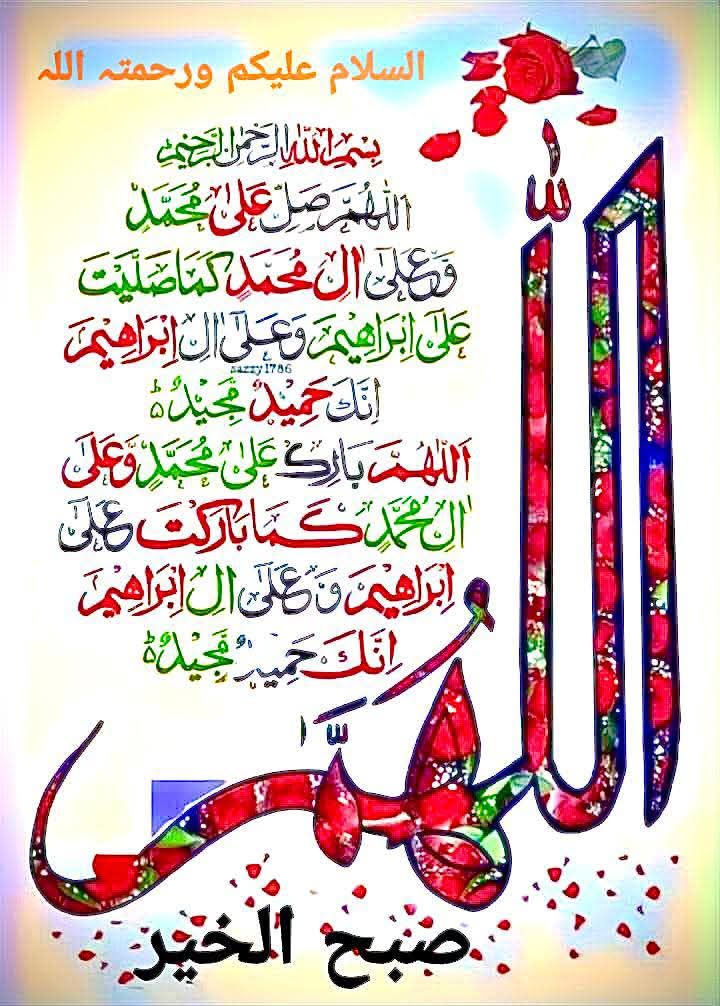 السلام علیکم ورحمتہ اللہ
بِسْمِ اللّٰهِ الرَّحْمٰنِ الرَّحِيْمِ
اَللّٰهُمَّ صَلِّ عَلٰى مُحَمَّدٍ
وَّعَلٰٓى اٰلِ مُحَمَّدٍ كَمَا صَلَّيْتَ
عَلٰٓى اِبْرَاهِيْمَ وَعَلٰٓى اٰلِ اِبْرَاهِيْمَ
sazzy1786
اِنَّكَ حَمِيْدٌ مَّجِيْدٌ ؕ
اَللّٰهُمَّ بَارِكْ عَلٰى مُحَمَّدٍ وَّعَلٰٓى
اٰلِ مُحَمَّدٍ كَمَا بَارَكْتَ عَلٰٓى
اِبْرَاهِيْمَ وَعَلٰٓى اٰلِ اِبْرَاهِيْمَ
اِنَّكَ حَمِيْدٌ مَّجِيْدٌ ؕ
اللّٰهُمَّ
صبح الخیر